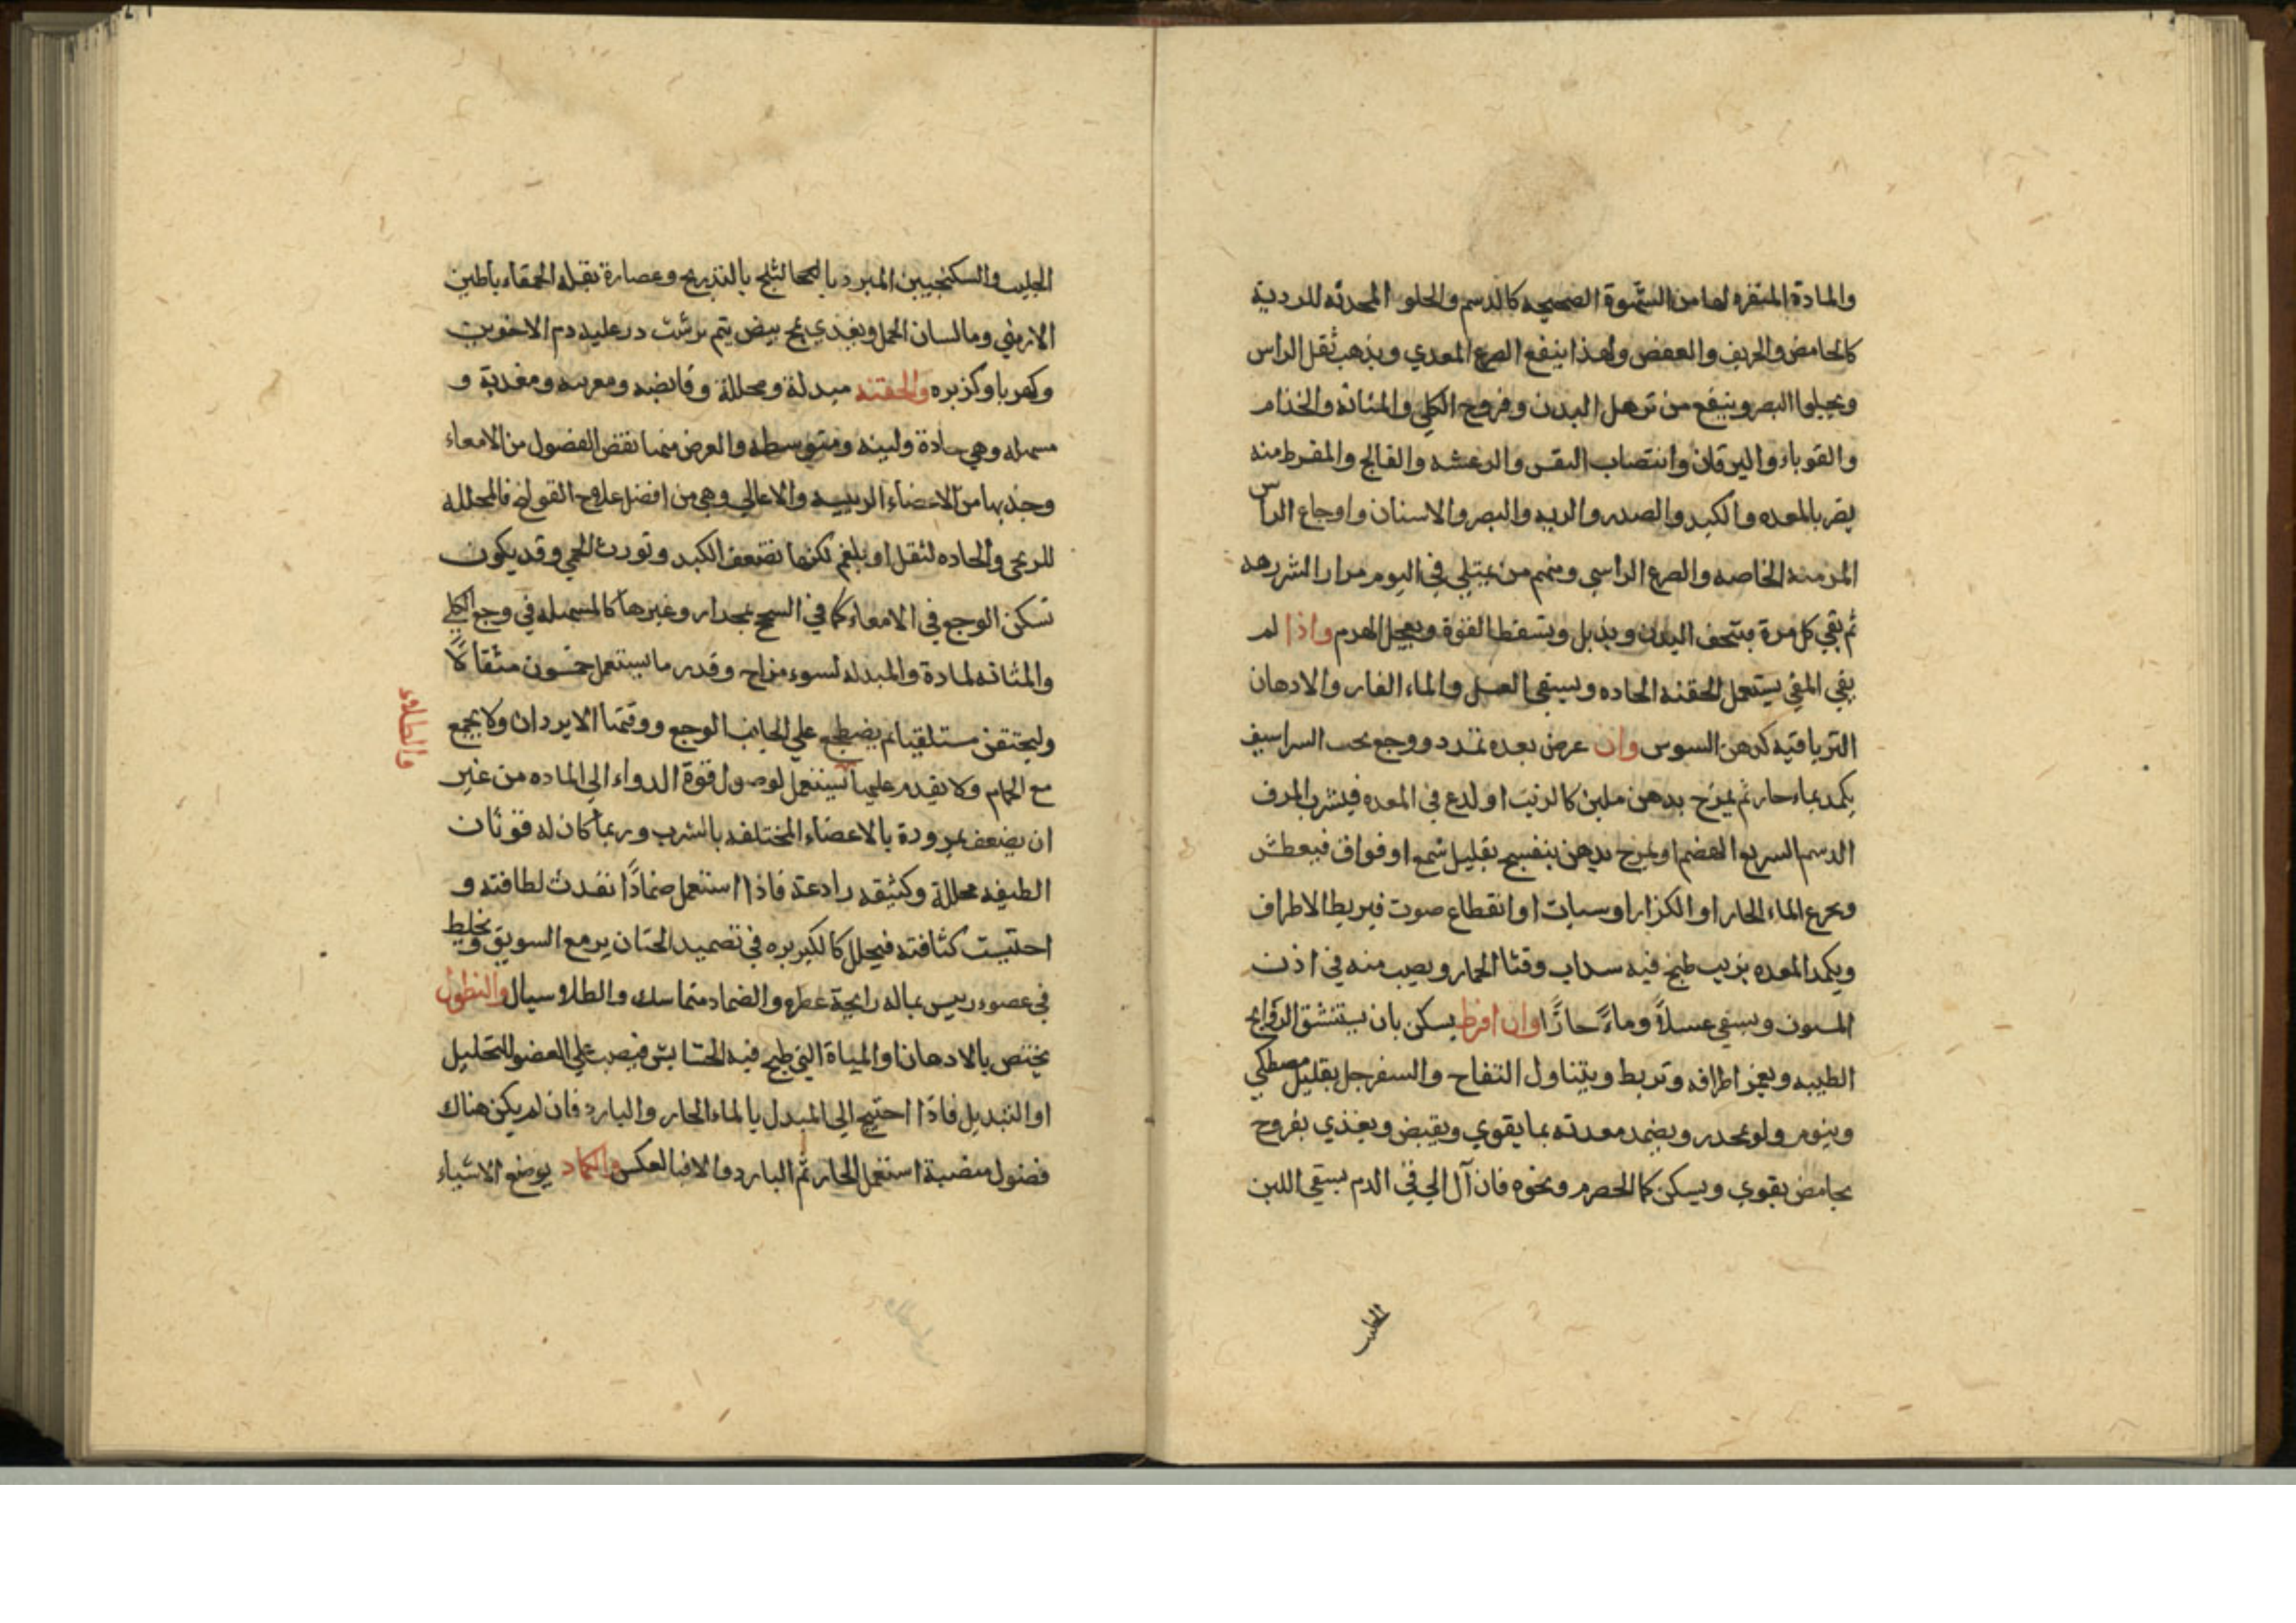 والمادة المنفره لها من الشهوة الصحيحه كالدسم والحلو المحدثه للرديئة
كالحامض والحريف والعفص ولهذا ينفع الصرع المعدي ويذهب ثقل الراس
ويجلوا البصر وينفع من ترهل البدن وقروح الكلي والمثانه والجذام
والقوباء واليرقان وانتصاب النفس والرعشه والفالج والمفرط منه
يضر بالمعده والكبد والصدر والريه والبصر والاسنان واوجاع الراس
المزمنه الخاصه والصرع الراسي ومنهم من يمتلي في اليوم مرارا لشرهه
ثم يقي كل مرة فينحف البدن ويذبل وتسقط القوة ويعجل الهرم واذا لم
يقي المقي يستعمل الحقنه الحاده ويسقي العسل والماء الفار والادهان
الترياقيه كدهن السوس وان عرض بعده تمدد ووجع تحت الشراسيف
يكمد بماء حار ثم يمرخ بدهن ملين كالزيت او لدع في المعده فيشرب المرق
الدسم السريع الهضم او يمرخ بدهن بنفسج بقليل شمع او فواق فيعطش
ويجرع الماء الحار او الكزاز او سبات او انقطاع صوت فيربط الاطراف
ويكمد المعده بزيت طبخ فيه سداب وقثا الحمار ويصب منه في اذن
المسبوت ويسقي عسلاً وماءً حارًا وان افرط يسكن بان يستنشق الروايح
الطيبه ويغمز اطرافه وتربط ويتناول التفاح والسفرجل بقليل مصطكي
وينوم ولو بمخدر ويضمد معدته بما يقوي ويقبض ويغذي بفروج
بحامض يقوي ويسكن كالحصرم ونحوه فان آل الي قي الدم يسقي اللبن
الحليب
الحليب والسكنجبين المبرد بالثلج بالتدريج وعصارة بقله الحمقاء باطين
الارمني وما لسان الحمل ويغدي بمح بيض يتم برشت در عليه دم الاخوين
وكهربا وكزبره والحقنه مبدلة ومحللة وقابضه ومغريه ومغدية و
مسهله وهي حادة ولينه ومتوسطه والغرض منها نفض الفضول من الامعاء
وجذبها من الاعضاء الرييسه والاعالي وهي من افضل علاج القولنج فالمحلله
للريح والحاده لثقل او بلغم لكنها تضعف الكبد وتورث الحمي وقد يكون
تسكن الوجع في الامعاء كما في السحج بمجدار وغيرها كالمسهله في وجع الكلي
والمثانه لمادة والمبدله لسوء مزاج وقدر ما يستعمل خمسون مثقالاً
وليحتقن مستلقيا ثم يضطجع علي الجانب الوجع ووقتها الابردان ولا يجمع
مع الحمام ولا يقدم عليها
فالطلاء
تستعمل لوصول قوة الدواء الي الماده من غير
ان يضعف بمرورة بالاعضاء المختلفه بالشرب وربما كان له قوتان
الطيفه محللة وكثيفه رادعة فاذا استعمل ضمادًا نفدت لطافته و
احتبست كثافته فيحلل كالكزبره في تضميد الخنازير مع السويق ويخلط
في عضو رييس بماله رايحة عطره والضماد متماسك والطلا سيال والنطول
يختص بالادهان او المياة التي طبخ فيه الحشايش فيصب علي العضو للتحليل
او التبديل فاذا احتيج الي المبدل بالماء الحار والبارد فان لم يكن هناك
فضول منصبة استعمل الحار ثم البارد والا فبالعكس والكماد يوضع الاشياء